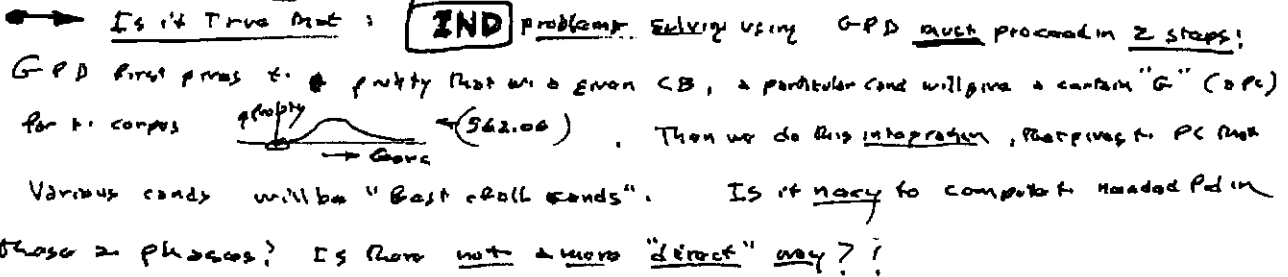 Is it True that : IND problems solving using GPD must proceed in 2 steps:
GPD first gives t. prob'ty that w. a given CB, a particular cand will give a certain "G" (or pc)
for t. corpus (562.06) . Then we do this integration, that gives t. PC that
Various cands will be "Best of all cands". Is it nacy to compute t. needed Pd in
those 2 phases? Is there not a more "direct" way??